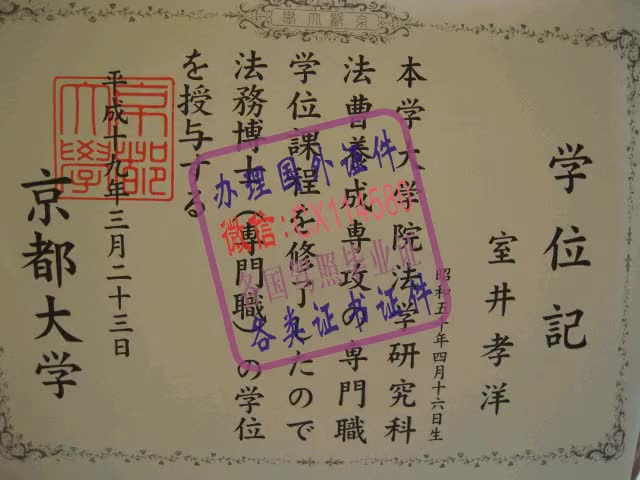 京都大學
学位記
室井孝洋
昭和五十年四月十六日生
本学大学院法学研究科
法曹養成専攻の専門職
学位課程を修了したので
法務博士(専門職)の学位
を授与する
平成十九年三月二十三日
京都大学
京都大學
办理国外证件
微信:CX114580
各国驾照毕业证
各类证书证件